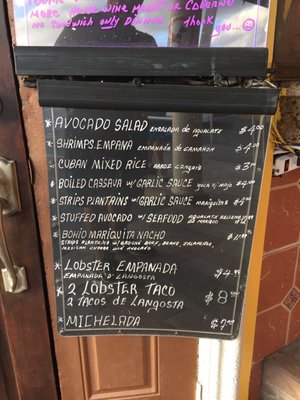 MORE
WINE MERLOT OR CABERNET
NO SANDWICH ONLY DINNER THANK
YOU...
* AVOCADO SALAD ENSALADA DE AGUACATE $4.00
* SHRIMPS EMPANA EMPANADA DE CAMARON $4.00
CUBAN MIXED RICE ARROZ CONGRIS $3.00
* BOILED CASSAVA W/ GARLIC SAUCE YUCA C/ MOJO $4.00
* STRIPS PLANTAINS W/ GARLIC SAUCE MARIQUITAS
* STUFFED AVOCADO W/ SEAFOOD AGUACATE RELLENO
DE MARISCO
* BOHIO MARIQUITA NACHO
STRIPS PLANTAINS W/ GROUND BEEF, BEANS, JALAPEÑOS,
MEXICAN CHEESE AND AVOCADO
* LOBSTER EMPANADA $4.
EMPANADA D' LANGOSTA
* 2 LOBSTER TACO $8.
2 TACOS DE LANGOSTA
* MICHELADA $7.